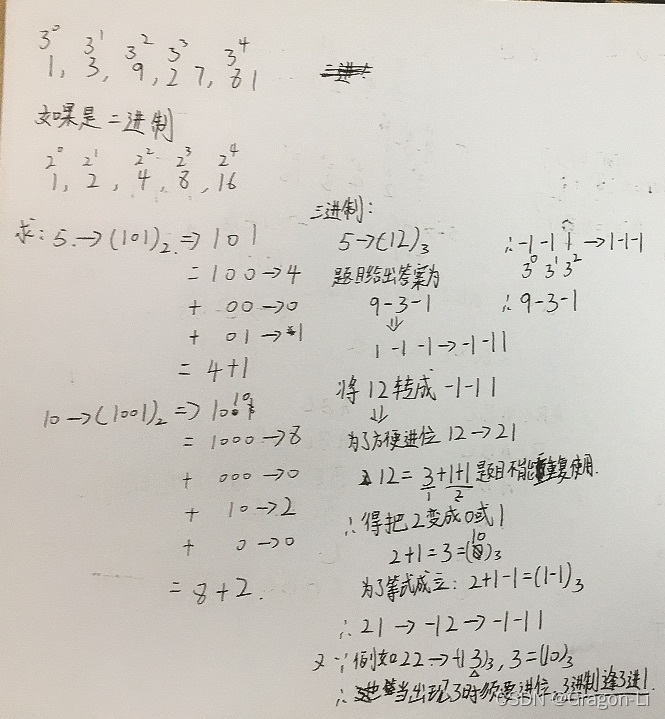 3⁰ 3¹ 3² 3³ 3⁴
1, 3, 9, 27, 81
如果是二进制
2⁰ 2¹ 2² 2³ 2⁴
1, 2, 4, 8, 16
求: 5 → (101)₂ ⇒ 101
= 100 → 4
+ 00 → 0
+ 01 → 1
= 4+1
10 → (1001)₂ ⇒ 1010
= 1000 → 8
+ 000 → 0
+ 10 → 2
+ 0 → 0
= 8+2.
三进制:
5 → (12)₃
题目给出答案为
9-3-1
⇓
1 -1 -1 → -1-11
将12转成 -1-11
⇓
为了方便进位 12 → 21
12 = 3+1+1 题目不能重复使用.
1 2
∴ 得把2变成0或1
2+1=3=(10)₃
为了等式成立: 2+1-1=(1-1)₃
∴ 21 → -12 → -1-11
又∵例如22 → (-13)₃, 3=(10)₃
∴ 当出现3时须要进位, 3进制逢3进1.
∴ -1-1 1 → 1-1-1
3⁰ 3¹ 3²
∴ 9-3-1
CSDN @Gragon-Li